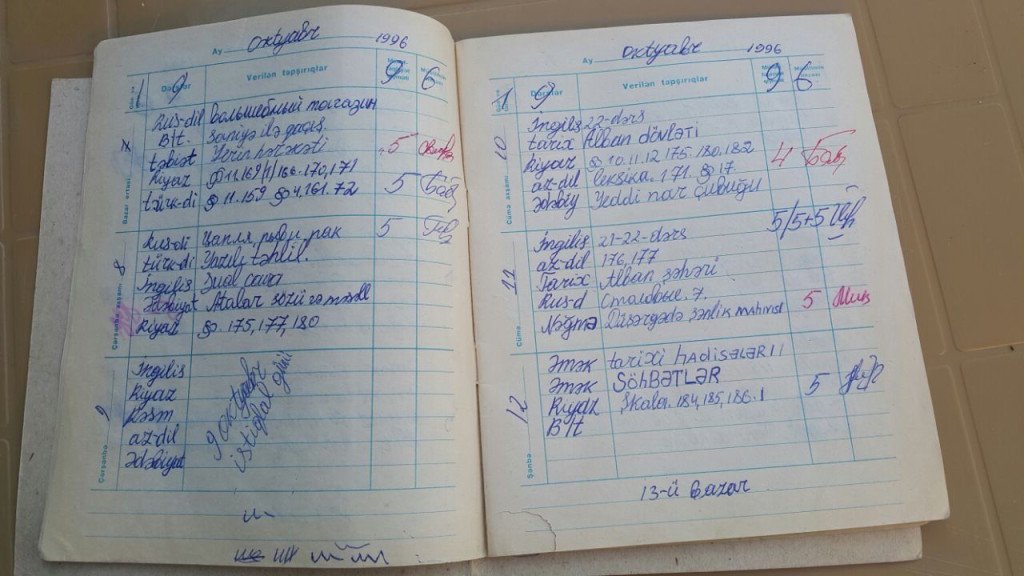 Ay oktyabr 1996
Verilən tapşırıqlar
Rus-dil Волшебный магазин
B/t. Səniyə ilə qaçış.
təbiət Yerin hərəkəti 5
Riyaz § 11.169 170,171
türk-di § 11.159 § 4.161.72 5 Баб
Rus-di Цапля, рыбы, рак 5
türk-di Yazılı təhlil.
İngilis Sual cavab
Ədəbiyat Atalar sözü və məsəl
Riyaz § 175,177,180
Bazar ertəsi
8
Çərşənbə axşamı
İngilis
Riyaz
Rəsm
az-dil
Ədəbiyat
9 oktyabr
istiqlal günü
9
Çərşənbə
Ay oktyabr 1996
Verilən tapşırıqlar
İngilis 22-dərs
tarix Alban dövləti
Riyaz § 10.11.12 175.180.182 4 Баб
az-dil leksika. 171. § 17
Ədəbiy Yeddi nar çubuğu
10
Cümə axşamı
İngilis 21-22-dərs 5/5+5
az-dil 176,177
Tarix Alban şəhəri
Rus-d 7.
Nəğmə Düşərgədə şənlik mahnısı 5
11
Cümə
Əmək tarixi HADİSƏLƏR
Əmək SÖHBƏTLƏR
Riyaz Şkala. 184,185,186.1 5
B/t
12
Şənbə
13-ü Bazar